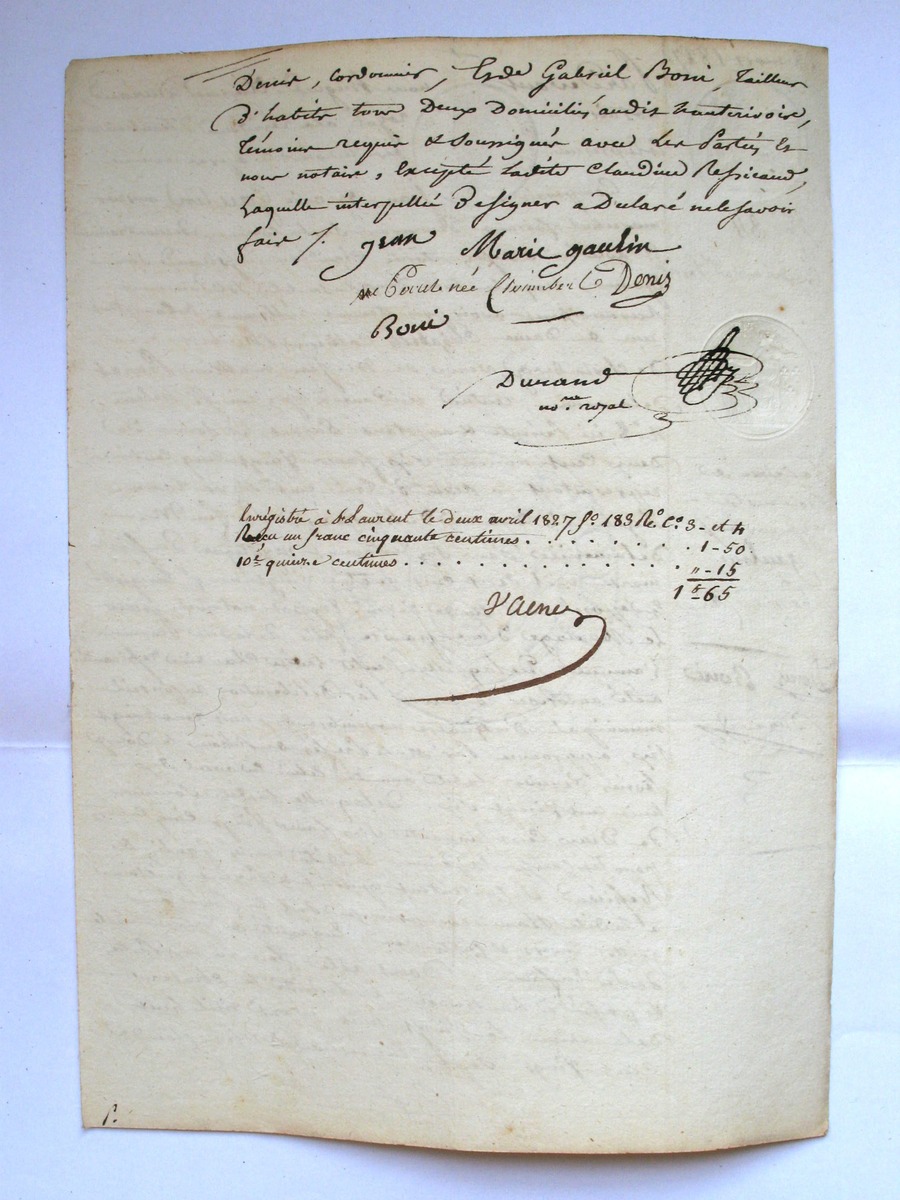 Denis, Cordonnier, Et de Gabriel Boni, Tailleur
d'habits tous Deux Domiciliés audit hauterivoire,
témoins requis et soussignés avec les Parties Et
nous notaire, Excepté Ladite Claudine Ressicaud,
Laquelle interpellée De signer a Declaré ne le savoir
faire /.
jean Marie gaulin
née Denis
Boni
Durand
no.re royal
Enrégistré à St Laurent le deux avril 1827 fo. 183 Ro. Co. 3 - et 4
Reçu un franc cinquante centimes . . . . . . . . 1 - 50
10e. quinze centimes . . . . . . . . . . . . . . " - 15
1 f 65